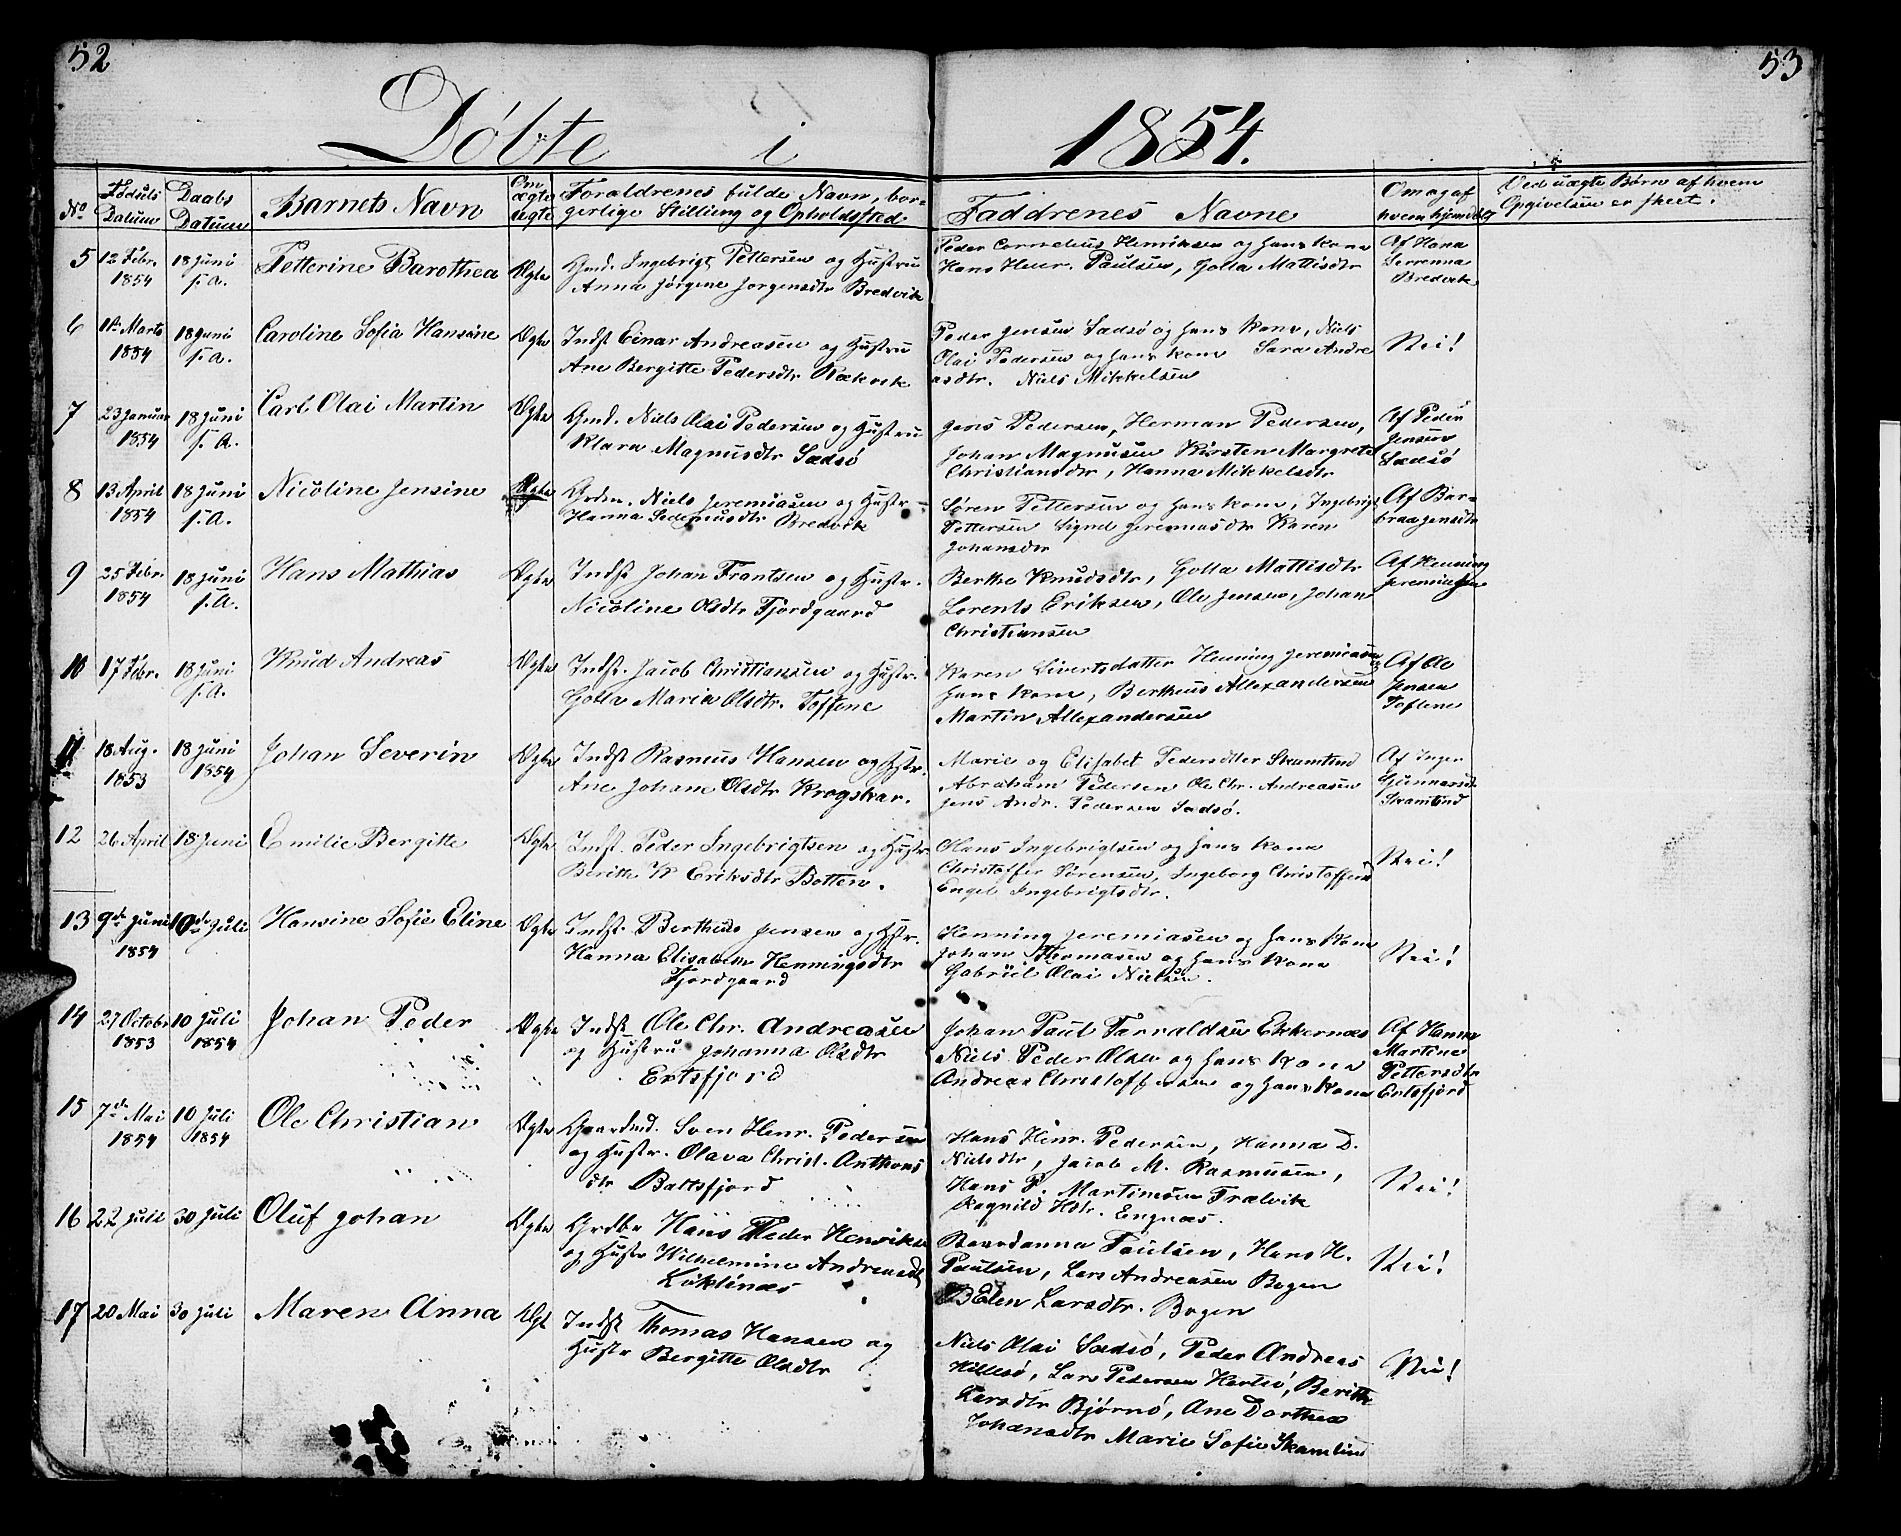 52
53
Döbte i 1854.
No
Fødsels Datum
Daabs Datum
Barnets Navn
Om ægte uægte
Forældrenes fulde Navn, bor-
gerlige Stilling og Opholdsstæd
Faddrenes Navne
Om og af
hvem hjemdøbt
Ved uægte Børn af hvem
Opgivelsen er skeet.
5 12 Febr. 1854
18 Juni s. A.
Petterine Barothea
Ægte
Gmd. Ingebrigt Pettersen og Hustru
Anna Jørgine Jørgensdtr Bredvik
Peder Cornelius Henriksen og hans kone
Hans Henr. Paulsen, Golla Mattisdtr
Af Hana
Serrenna
Bredvik
6 11te Marts 1854
18 Juni s. A.
Caroline Sofia Hansine
Ægte
Indst Einar Andreasen og Hustru
Ane Bergitte Pedersdtr Rækvik
Peder Jensen Sædsö og hans kone, Niels
Olai Pedersen og hans kone Sara Andre
asdtr. Niels Mikkelsen
Nei!
7 23 Januar 1854
18 Juni s. A.
Carl Olai Martin
Ægte
Gmd. Niels Olai Pedersen og Hustru
Klara Magnusdtr Sædsö
Jens Pedersen, Herman Pedersen,
Johan Magnusen Kirsten Margrete
Christiansdtr, Hanna Mikkelsdtr
Af Peder
Jensen
Sædsö
8 13 April 1854
18 Juni s. A.
Nicoline Jensine
Ægte
Grdm. Niels Jeremiasen og Hustr.
Hanna Sedeniusdtr Bredvik
Sören Pettersen og hans kone, Ingebrigt
Pettersen Signel Jeremiasdtr Karen
Johansdtr
Af Bar-
bra Jensdtr
9 25 Febr. 1854
18 Juni s. A.
Hans Mathias
Ægte
Indst Johan Frantsen og Hustr.
Nicoline Olsdtr Fjordgaard
Berthe Knudsdtr, Golla Mattisdtr
Lorents Eriksen, Ole Jensen, Johan
Christiansen
Af Henning
Jeremiasen
10 17 Febr.
18 Juni s. A.
Knud Andreas
Ægte
Indst. Jacob Christiansen og Hustr.
Golla Maria Olsdtr. Toftene
Karen Sivertsdatter Henning Jeremiasen og
hans kone, Bertheus Allexandersen
Martin Allexandersen
Af Ole
Jensen
Toftene
11 18 Aug. 1853
18 Juni 1854
Johan Severin
Ægte
Indst Rasmus Hansen og Hstr.
Ane Johane Olsdtr Krogskar.
Marie og Elisabet Pedersdtter Skamtind
Abraham Pedersen Ole Chr. Andreasen
Jens Andr. Pedersen Sædsö.
Af Inger
Gunnarsdtr
Skamtind
12 26 April
18 Juni
Emilie Bergitte
Ægte
Indst. Peder Ingebrigtsen og Hustr.
Berith K Eriksdtr Botten.
Hans Ingebrigtsen og hans kone
Christoffer Sörensen, Ingeborg Christoffersd
Engel Ingebrigtsdtr.
Nei!
13 9de Juni 1854
10de Juli
Hansine Sofie Eline
Ægte
Indst. Bertheus Jensen og Hstr.
Hanna Elisabeth Henningsdtr
Fjordgaard
Henning Jeremiasen og hans kone
Johan Thomasen og hans kone
Gabriel Olai Nielsen.
Nei!
14 27 Octobr 1853
10 Juli 1854
Johan Peder
Ægte
Indst Ole Chr. Andreasen
og Hustru Johanna Olsdtr
Ertsfjord
Johan Paul Tarraldsen Ekkernæs
Niels Peder Olsen og hans kone
Andreas Christoffersen og hans kone
Af Hanna
Martine
Pettersdtr
Ertsfjord
15 7de Mai 1854
10 Juli 1854
Ole Christian
Ægte
Gaardmd. Sven Henr. Pedersen
og Hustr. Olava Christ. Anthons
dtr Baltsfjord
Hans Henr. Pedersen, Hanna D.
Nielsdtr, Jacob M. Rasmusen,
Hans P. Martinusen Trælvik
Ragnild Hdtr. Engnæs.
Nei!
16 22 Juli
30 Juli
Oluf Johan
Ægte
Grdbr Hans Peder Henriksen
og Hustr Wilhelmine Andreasdtr
Luklinæs
Baardanna Paulsen, Hans H.
Paulsen, Lars Andreasen Bogen
Elen Larsdtr. Bogen
Nei!
17 20 Mai
30 Juli
Maren Anna
Ægt
Indst Thomas Hansen og
Hustr Bergitte Olsdtr
Niels Olai Sædsö, Peder Andreas
Hillesö, Lars Pedersen Hertsö, Berithe
Larsdtr Björnö, Ane Dorthea
Johansdtr Marie Sofie Skamtind
Nei!